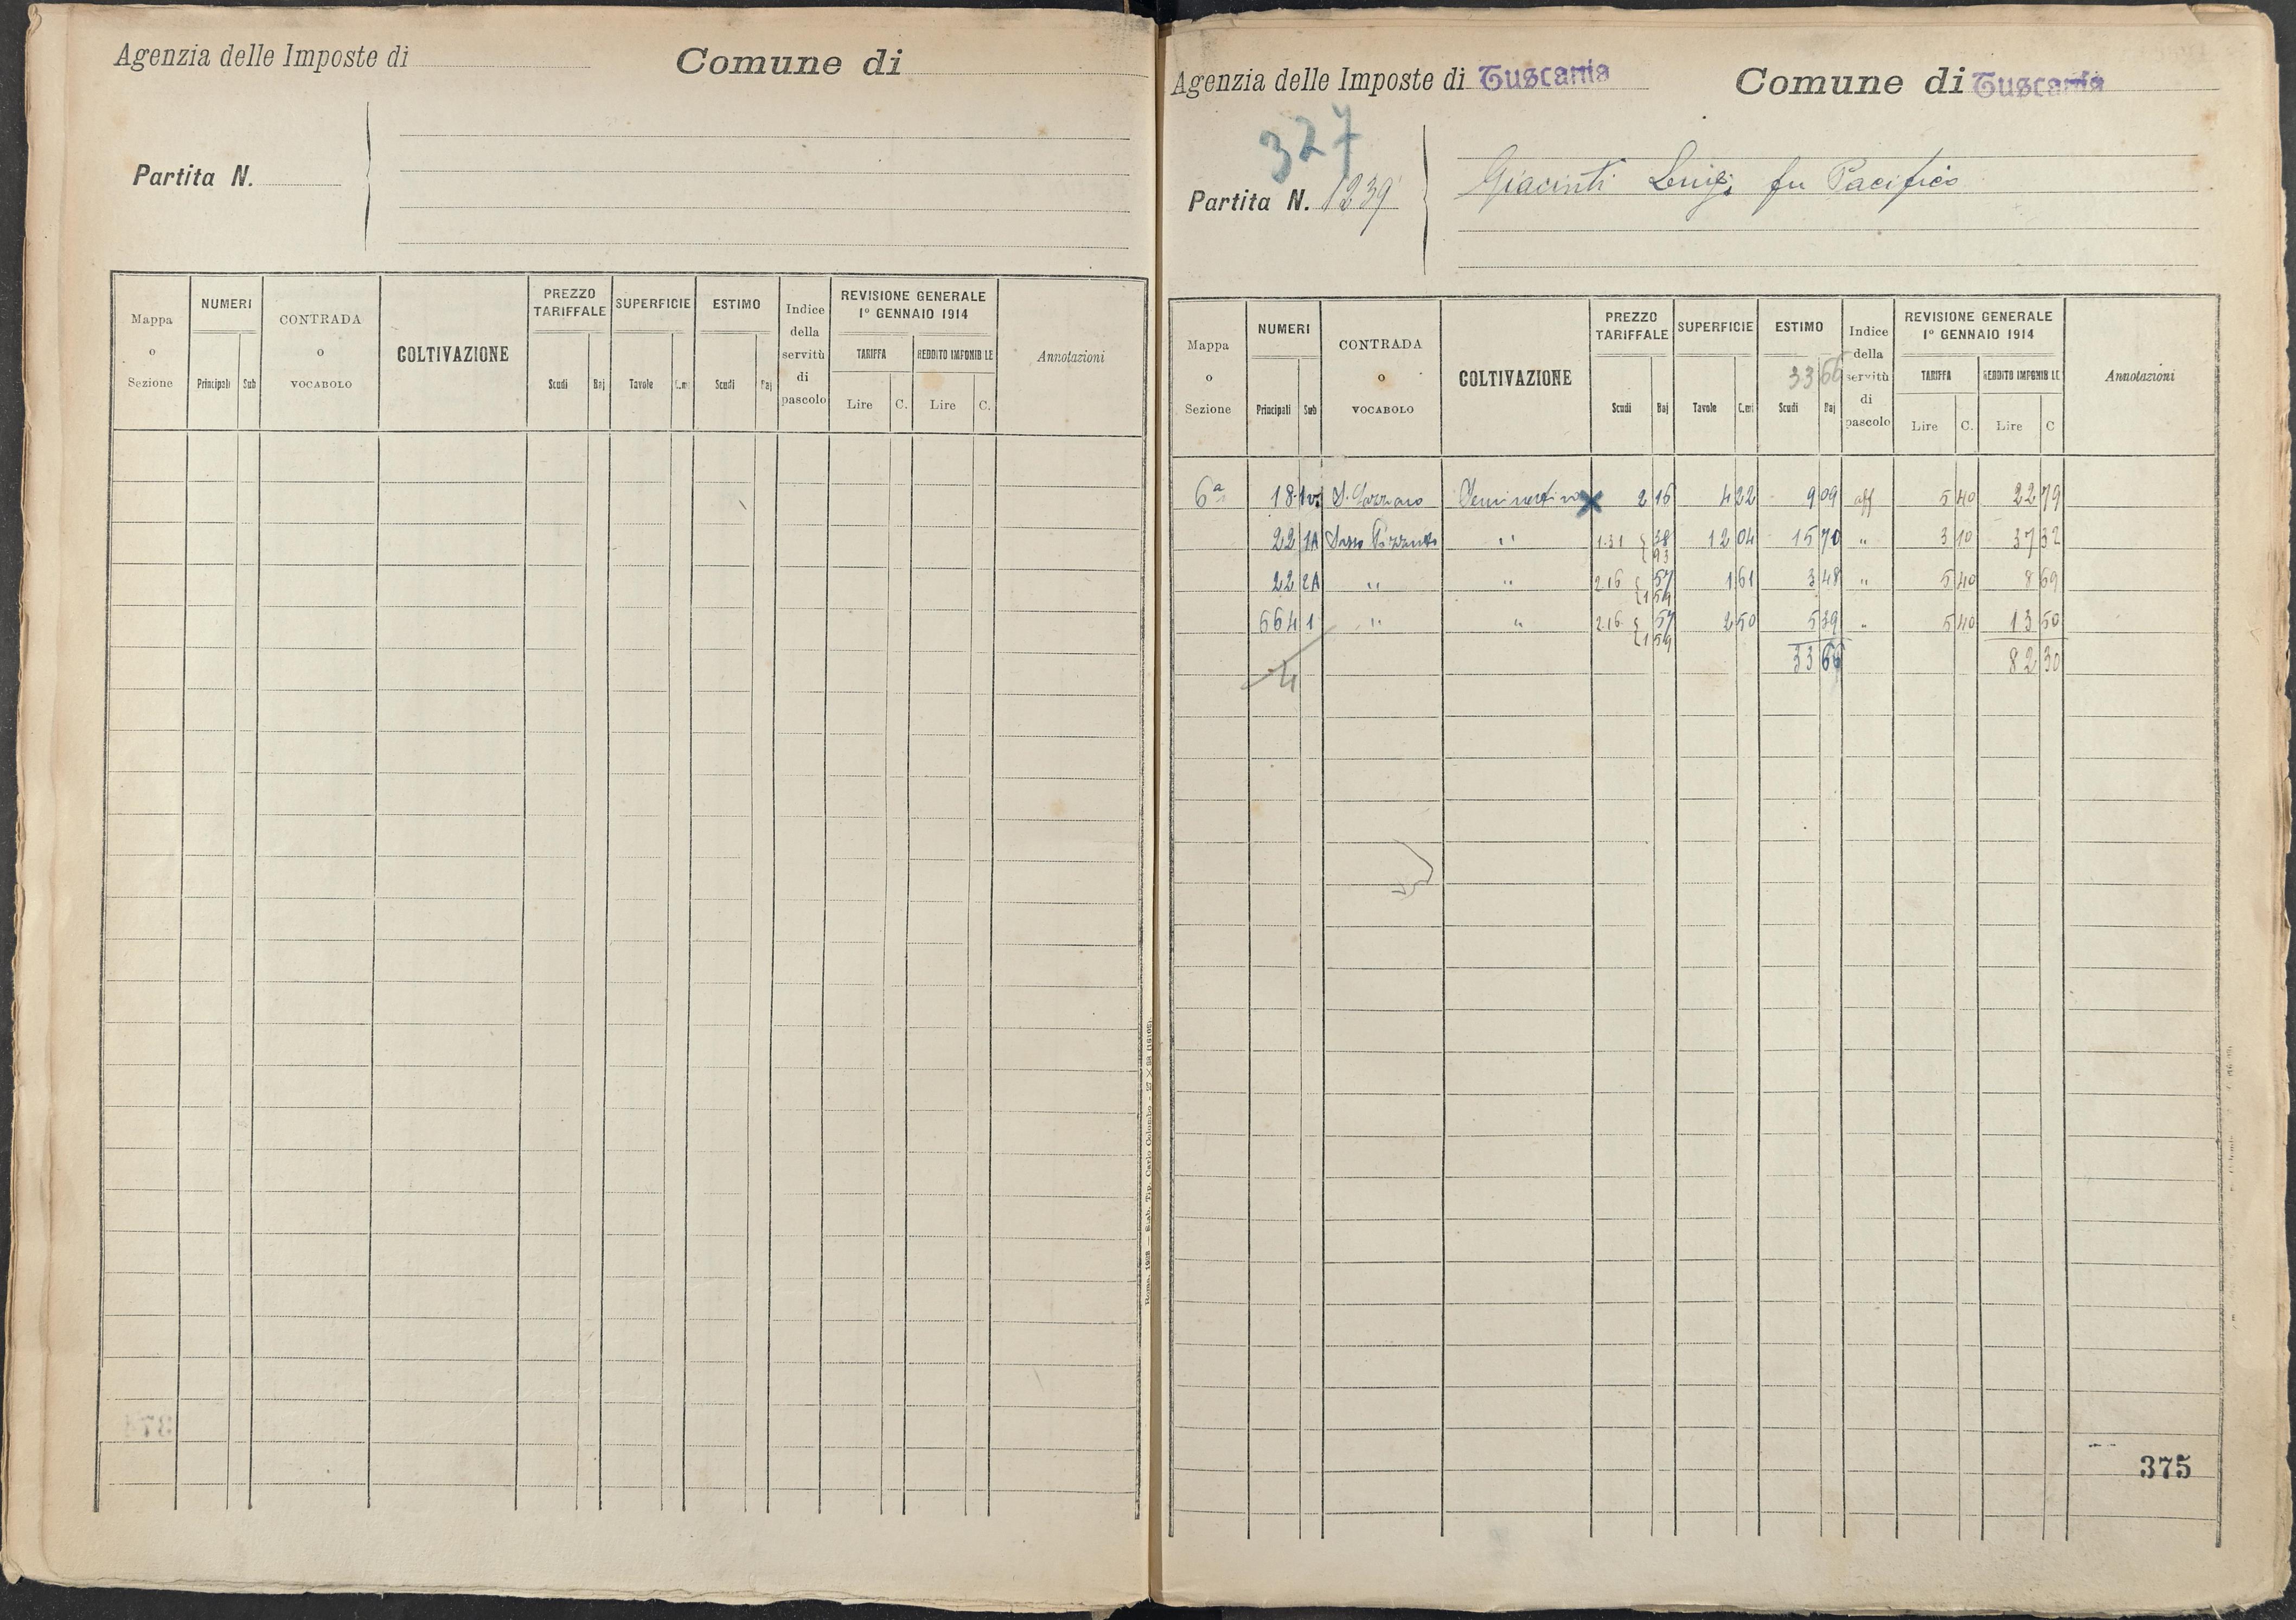 Agenzia delle Imposte di Comune di
Partita N.
Mappa o Sezione NUMERI Principali Sub CONTRADA o VOCABOLO COLTIVAZIONE PREZZO TARIFFALE Scudi Baj SUPERFICIE Tavole C.mi ESTIMO Scudi Baj Indice della servitù di pascolo REVISIONE GENERALE 1° GENNAIO 1914 TARIFFA Lire C. REDDITO IMPONIBILE Lire C. Annotazioni
Roma, 1923 — Stab. Tip. Carlo Colombo
Agenzia delle Imposte di Tuscania Comune di Tuscania
327
Partita N. 1239 Giacinti Luigi fu Pacifico
Mappa o Sezione NUMERI Principali Sub CONTRADA o VOCABOLO COLTIVAZIONE PREZZO TARIFFALE Scudi Baj SUPERFICIE Tavole C.mi ESTIMO 33 66 Scudi Baj Indice della servitù di pascolo REVISIONE GENERALE 1° GENNAIO 1914 TARIFFA Lire C. REDDITO IMPONIBILE Lire C Annotazioni
6a 18 S. Lazzaro Seminativo 2 16 4 22 9 09 aff 5 40 22 79
22 1A Sasso Pizzuto " 1.31 38 93 12 04 15 70 " 3 10 37 32
22 2A " " 2.16 57 1 59 1 61 3 48 " 5 40 8 69
664 1 " " 2.16 57 1 59 2 50 5 39 " 5 40 13 50
33 66 82 30
4
375